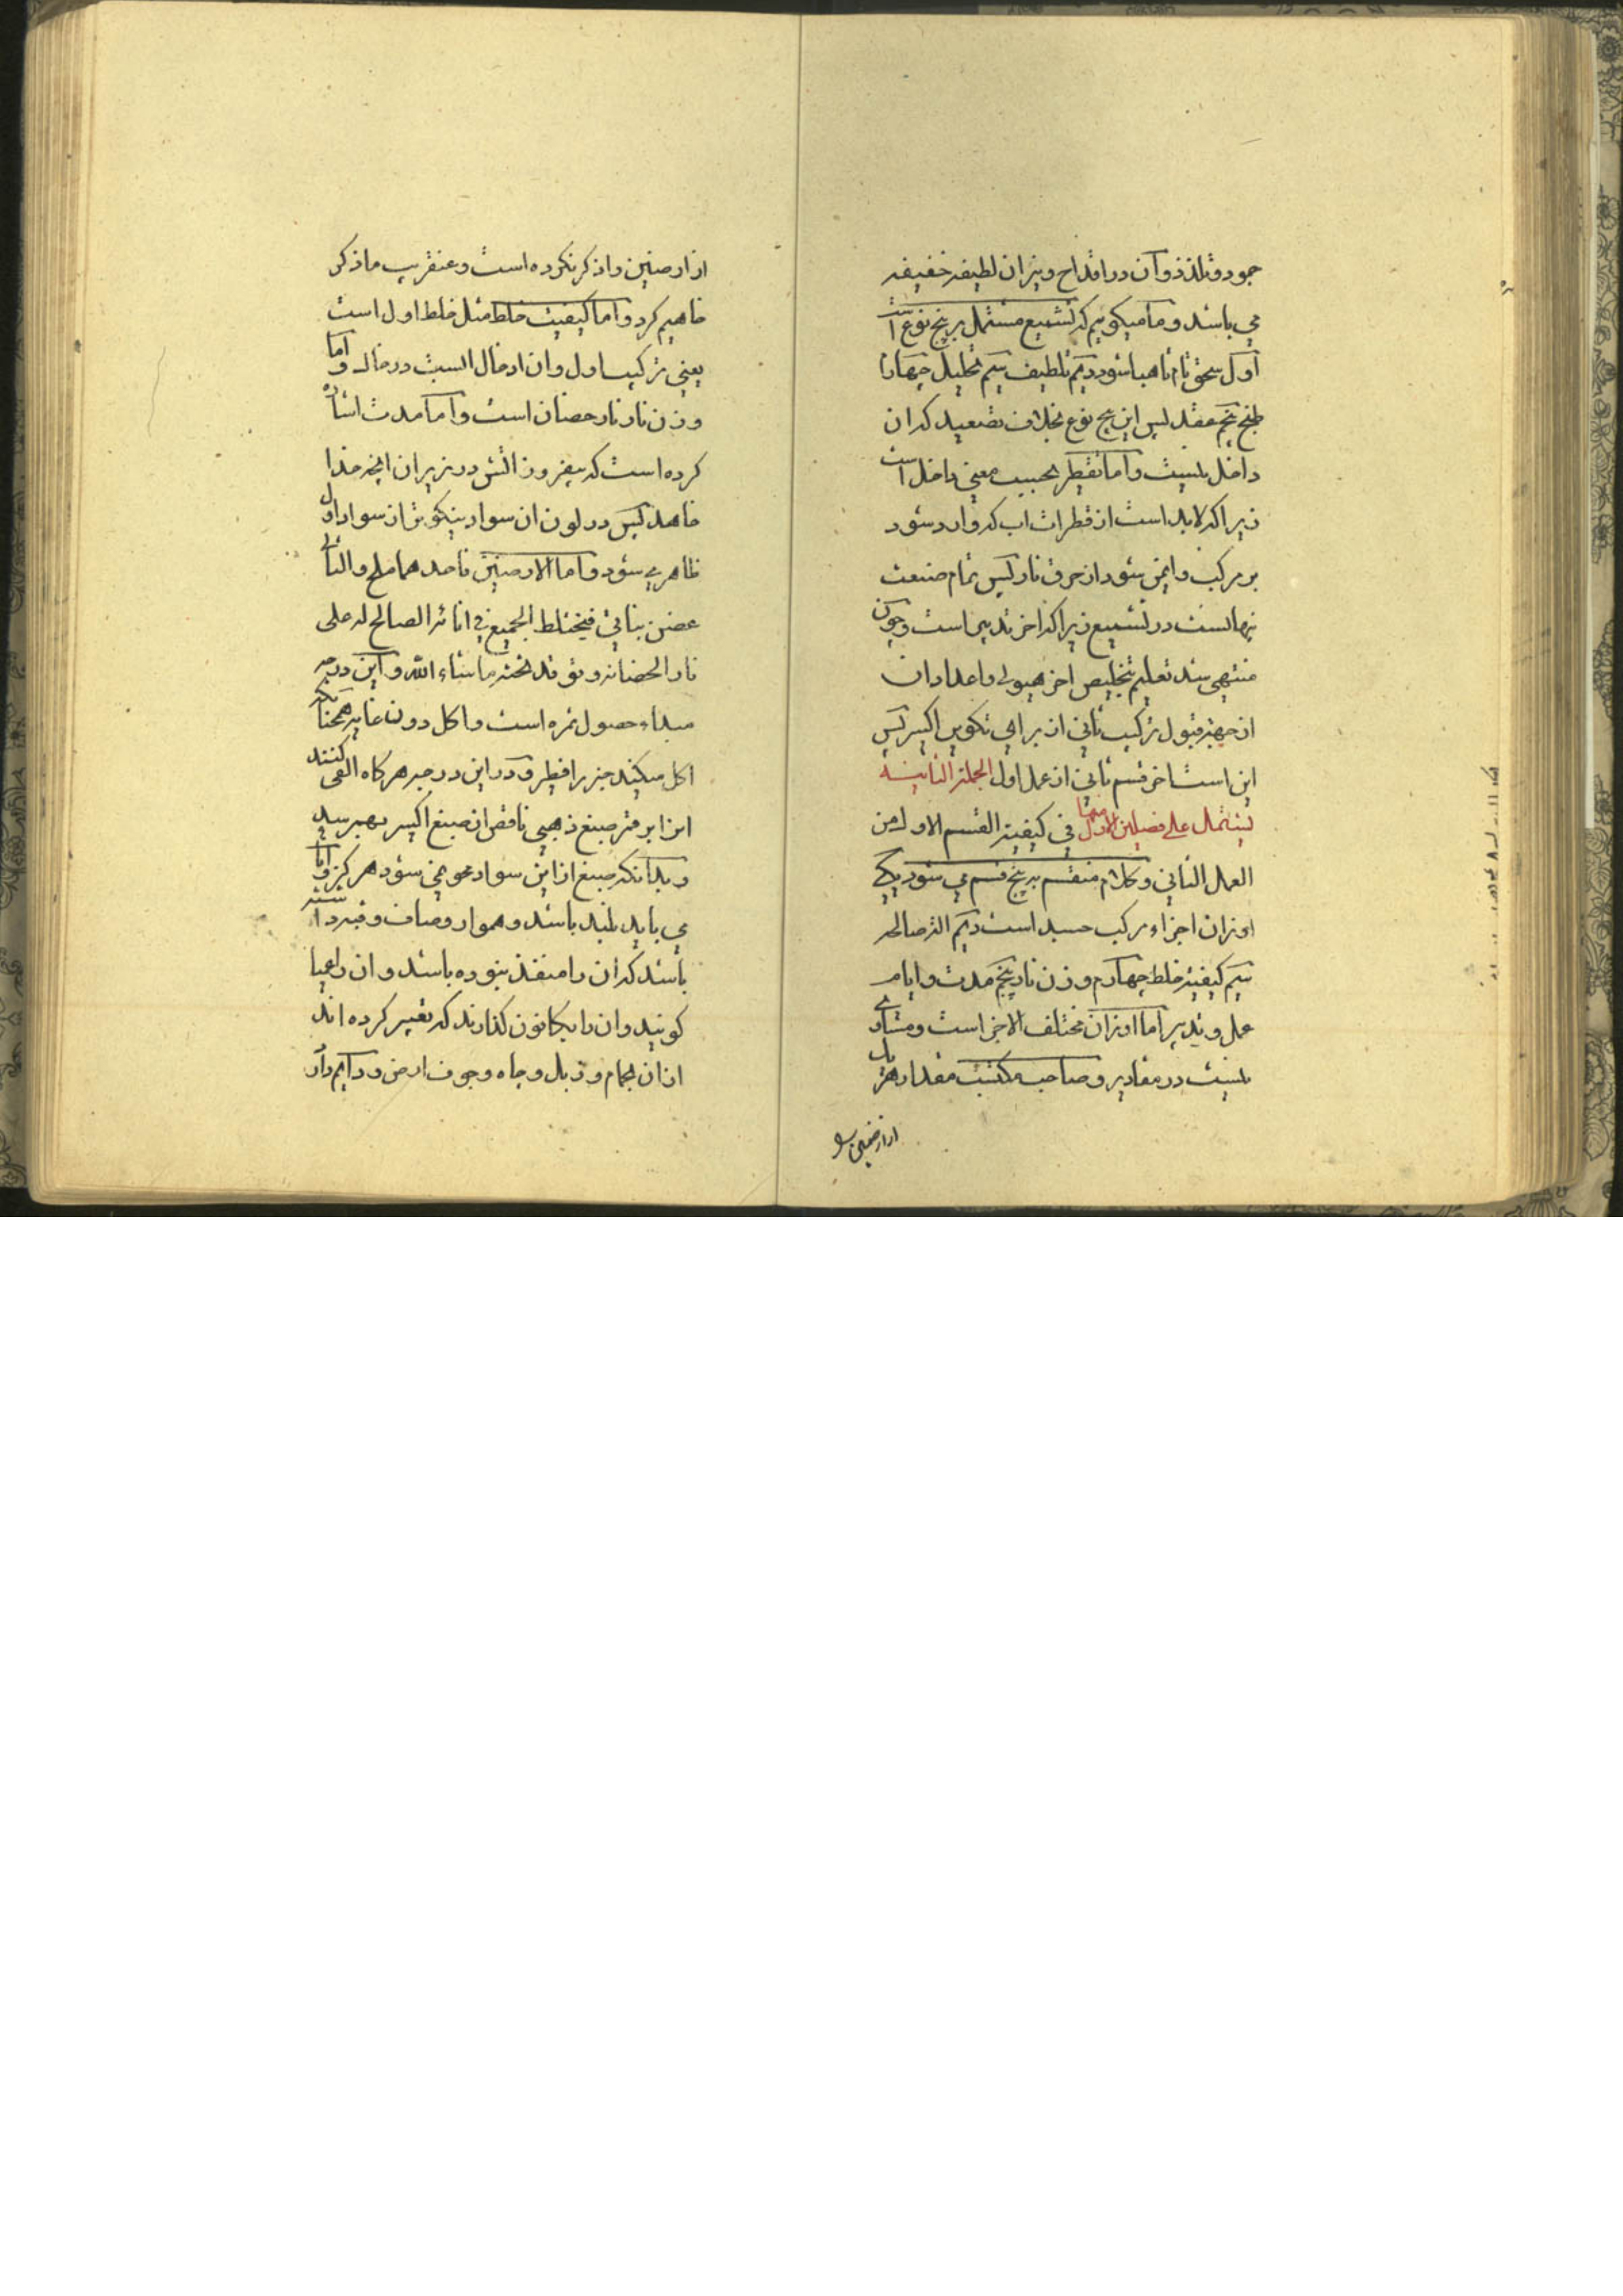 جمود و تلذذ و آن در اقداح و نیران لطیفه خفیفه
می باشد و ما میکوییم که تشمیع مشتمل بر پنج نوع است
اول سحق تام تا هبا شود دویم تلطیف سیم تحلیل چهارم
طبخ پنجم عقد پس این پنج نوع بخلاف تصعید که ان
داخل نیست و اما تقطیر بحسب معنی داخل است
زیرا که لابد است از قطرات اب که وارد شود
بر مرکب و ایمن شود از حرق نار پس تمام صنعت
در تشمیع زیرا که اخر تدبیر است و چون
منتهی شد تعلیم بتخلیص اخر هیولی و اعداد ان
از جهة قبول ترکیب ثانی از برای تکوین اکسیر پس
این است اخر قسم ثانی از عمل اول الجملة الثانیة
یشتمل علی فصلین الاول منها فی کیفیة القسم الاول من
العمل الثانی و کلام منقسم به پنج قسم می شود یکی
اوزان اجزاء مرکب جسد است دویم الة صالحه
سیم کیفیة خلط چهارم وزن نار پنجم مدت و ایام
عمل و تدبیر اما اوزان مختلف الاجزا است و متساوی
نیست در مقادیر و صاحب مکتسب مقدار هر یک
از ارضین
از ارضین را ذکر نکرده است و عنقریب ما ذکر
خاهیم کرد و اما کیفیت خلط مثل خلط اول است
یعنی ترکیب اول و ان ادخال الست در خال و اما
وزن نار نار حضان است و اما مدت اشاره
کرده است که بیفروز اتش در زیر ان انچه خدا
خاهد پس در لون ان سواد نیکوتر از سواد اول
ظاهر می شود و اما الارضین فاحدهما ملح و الثانی
غصن نباتی فیختلط الجمیع فی انائه الصالح له علی
نار الحضانه و توقد تحته ما شاء الله و این درجه
مبداء حصول ثمره است و اکل دون غایه همچنانکه
اکل میکنند جزر را فطر و در این درجه هرکاه القی کنند
انرا بر قمر صبغ ذهبی ناقص از صبغ اکسیر بهم رسد
و بدانکه صبغ از این سواد محو نمی شود هرکز و اما
می باید بلند باشد و هموار و صاف و قبه داشته
باشد که ان را منفذ نبوده باشد و ان را عمیا
کویند و ان را بکانون کذارند که تعبیر کرده اند
از ان بحمام و زبل و چاه و جوف ارض و دایم دار